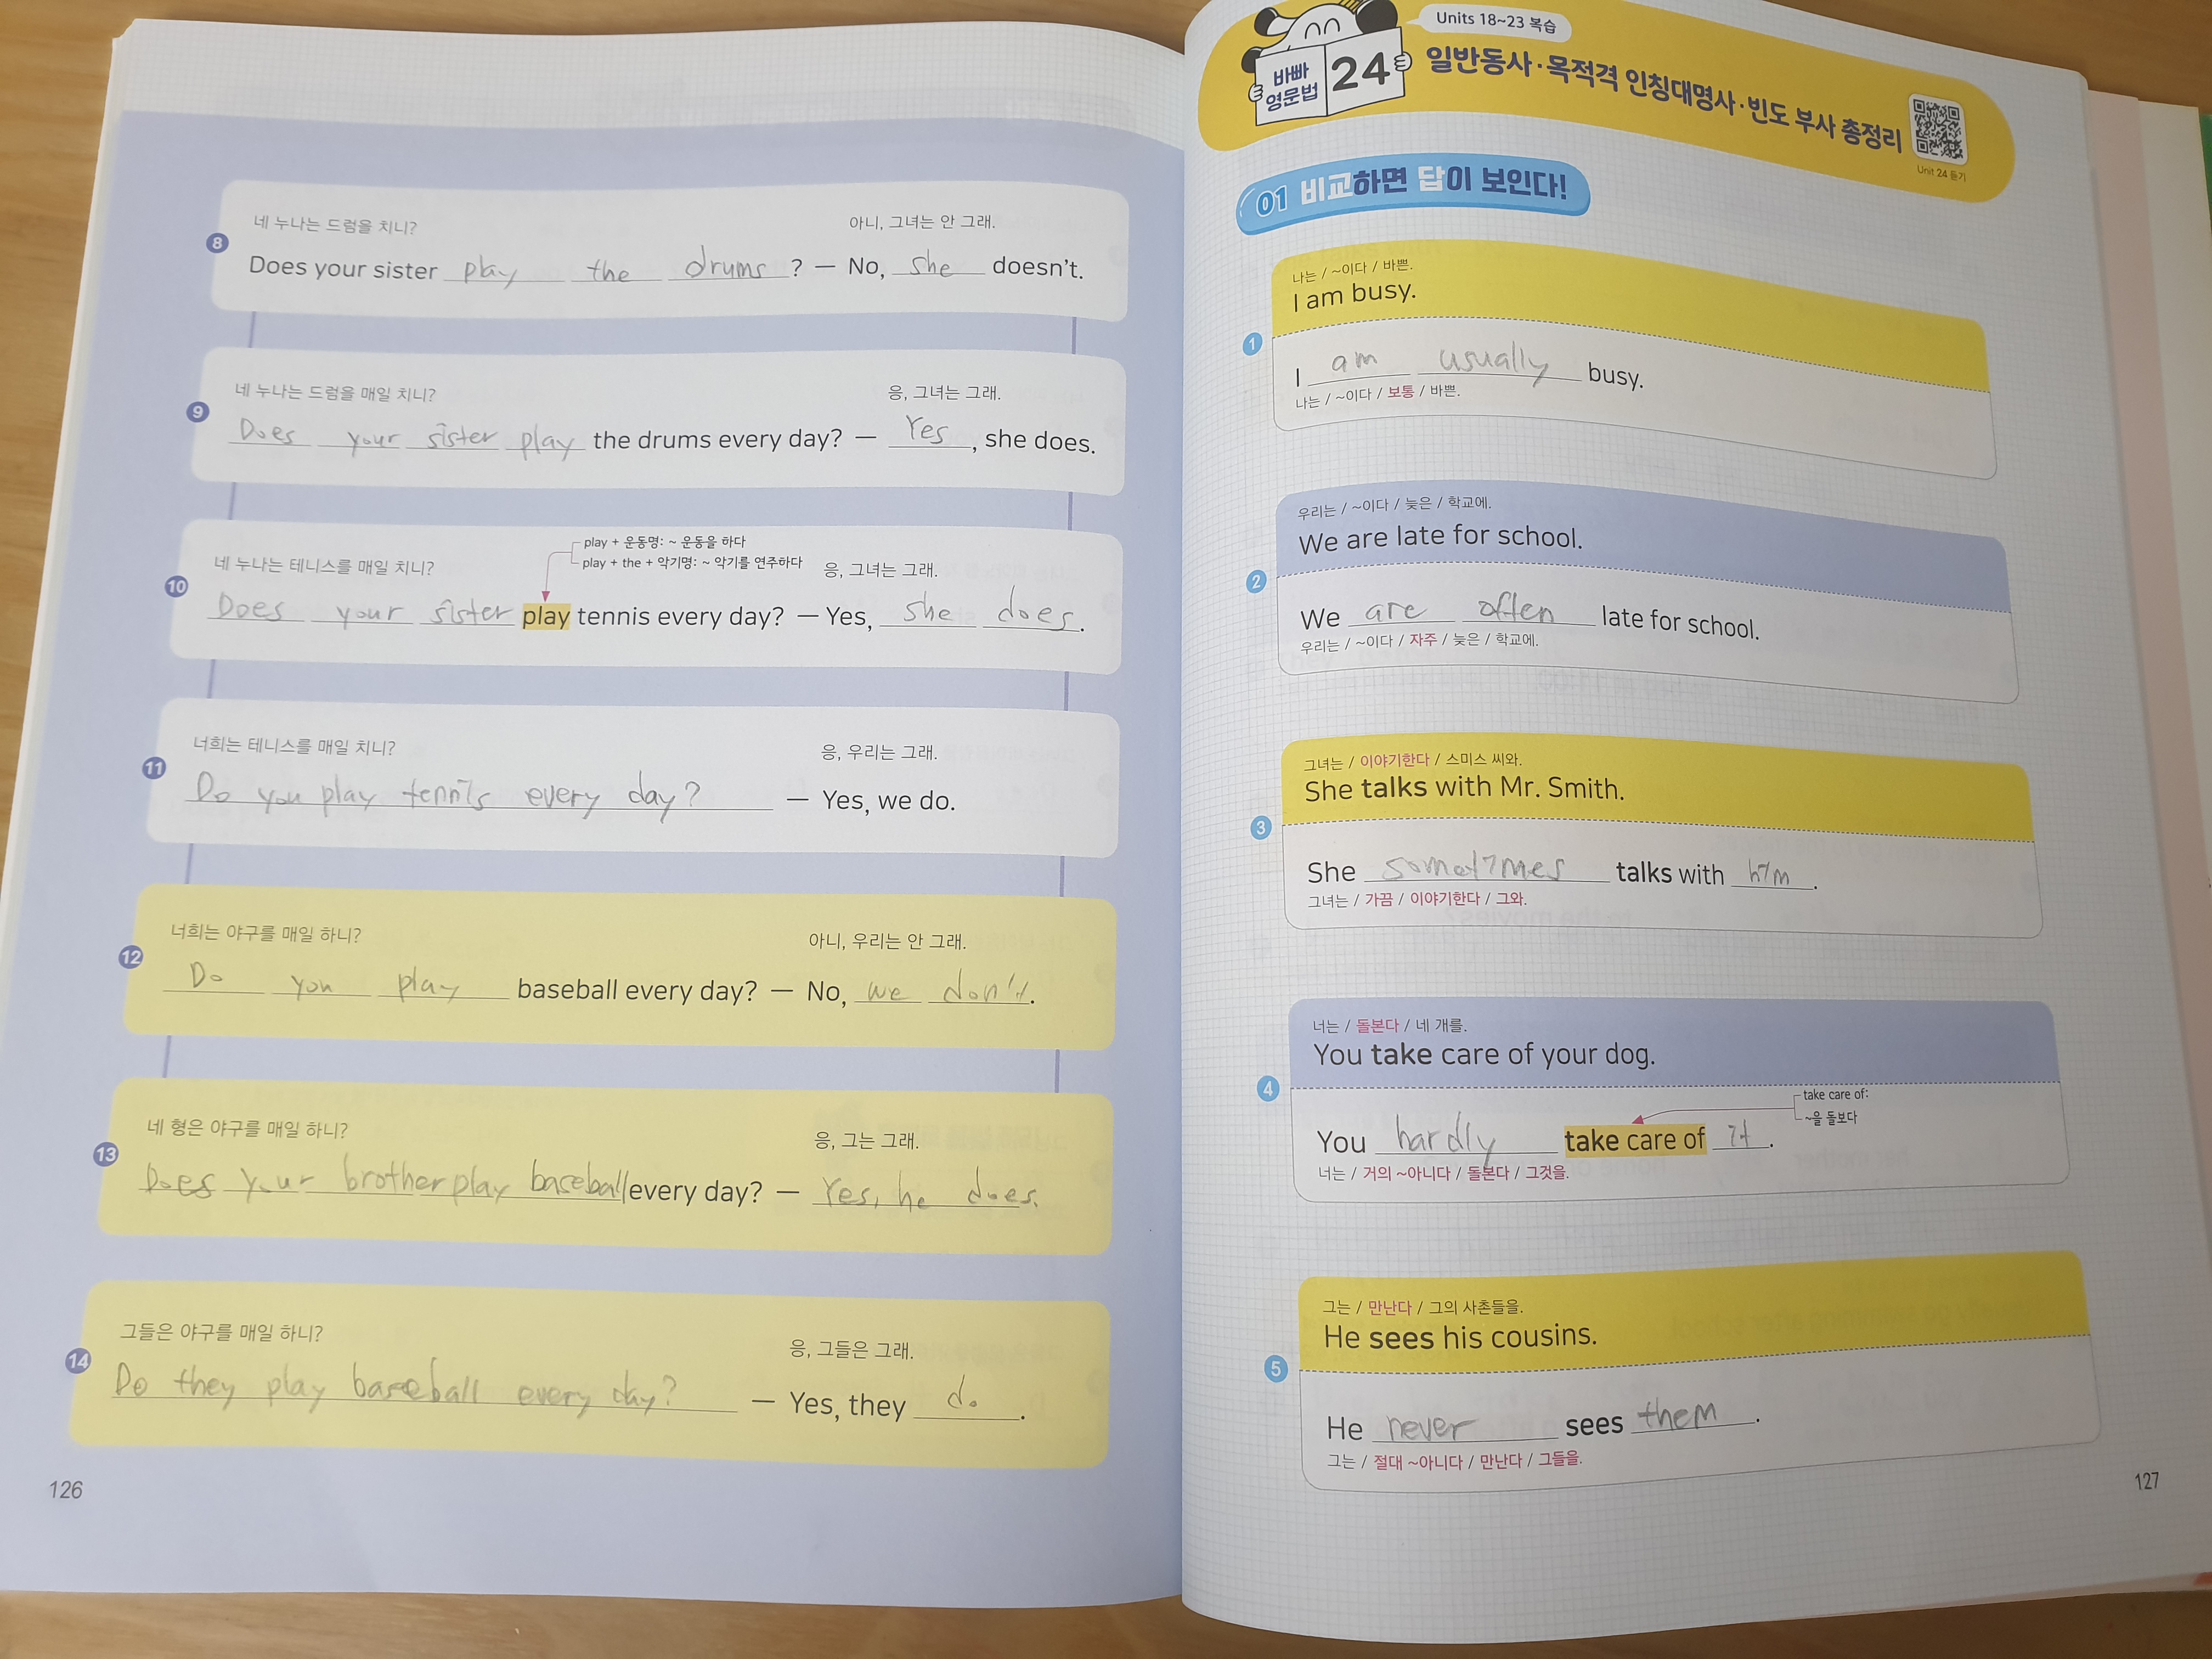 네 누나는 드럼을 치니? 아니, 그녀는 안 그래.
8 Does your sister play the drums ? — No, she doesn't.
네 누나는 드럼을 매일 치니? 응, 그녀는 그래.
9 Does your sister play the drums every day? — Yes, she does.
play + 운동명: ~ 운동을 하다
play + the + 악기명: ~ 악기를 연주하다
네 누나는 테니스를 매일 치니? 응, 그녀는 그래.
10 Does your sister play tennis every day? — Yes, she does.
너희는 테니스를 매일 치니? 응, 우리는 그래.
11 Do you play tennis every day? — Yes, we do.
너희는 야구를 매일 하니? 아니, 우리는 안 그래.
12 Do you play baseball every day? — No, we don't.
네 형은 야구를 매일 하니? 응, 그는 그래.
13 Does your brother play baseball every day? — Yes, he does.
그들은 야구를 매일 하니? 응, 그들은 그래.
14 Do they play baseball every day? — Yes, they do.
126
Units 18~23 복습
바빠 영문법 24
일반동사·목적격 인칭대명사·빈도 부사 총정리
Unit 24 듣기
01 비교하면 답이 보인다!
나는 / ~이다 / 바쁜.
I am busy.
1 I am usually busy.
나는 / ~이다 / 보통 / 바쁜.
우리는 / ~이다 / 늦은 / 학교에.
We are late for school.
2 We are often late for school.
우리는 / ~이다 / 자주 / 늦은 / 학교에.
그녀는 / 이야기한다 / 스미스 씨와.
She talks with Mr. Smith.
3 She sometimes talks with him.
그녀는 / 가끔 / 이야기한다 / 그와.
너는 / 돌본다 / 네 개를.
You take care of your dog.
take care of:
~을 돌보다
4 You hardly take care of it.
너는 / 거의 ~아니다 / 돌본다 / 그것을.
그는 / 만난다 / 그의 사촌들을.
He sees his cousins.
5 He never sees them.
그는 / 절대 ~아니다 / 만난다 / 그들을.
127